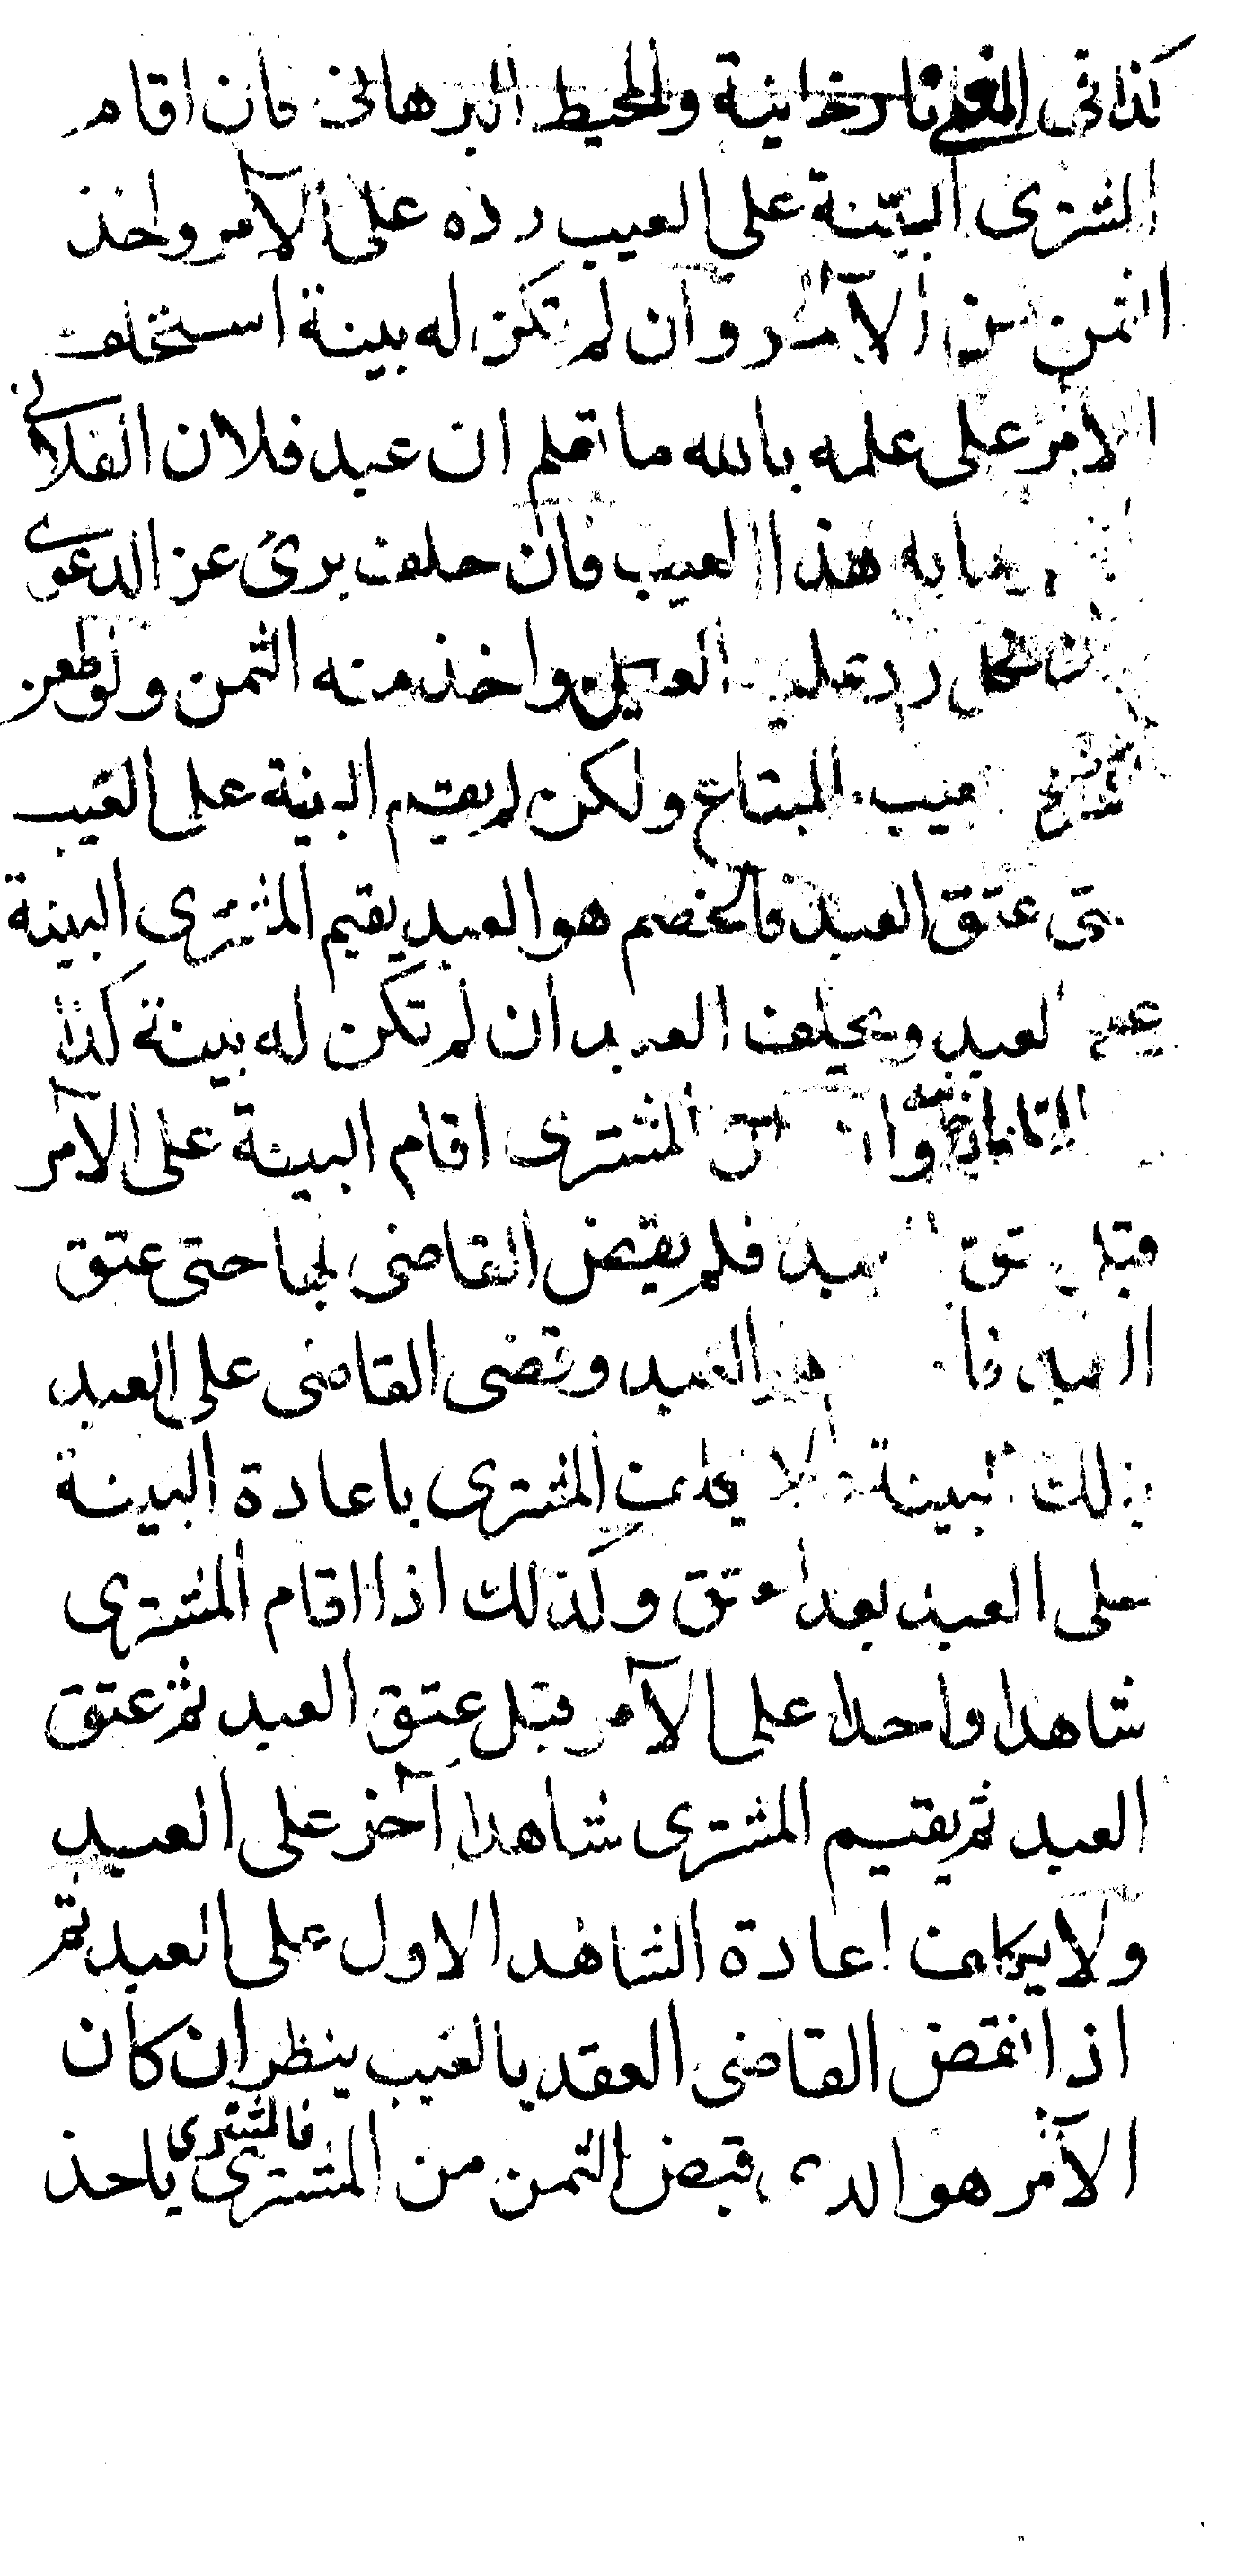 كذا في التاتارخانية والمحيط البرهاني فان اقام
المشتري البينة على العيب رده على الآمر واخذ
الثمن من الآمر وان لم تكن له بينة استحلف
الآمر على علمه بالله ما تعلم ان عبد فلان الفلاني
وما به هذا العيب فان حلف برئ عن الدعوى
وان نكل رد عليه العبد واخذ منه الثمن ولو طعن
المشتري بعيب المبتاع ولكن لم يقم البينة على العيب
حتى عتق العبد فالخصم هو العبد يقيم المشتري البينة
على العبد ويحلف العبد ان لم تكن له بينة كذا
التاتارخانية وان المشتري اقام البينة على الآمر
قبل عتق العبد فلم يقض القاضي بها حتى عتق
العبد هو العبد وقضى القاضي على العبد
بتلك البينة ولا يكلف المشتري باعادة البينة
على العبد بعد عتق وكذلك اذا اقام المشتري
شاهدا واحدا على الآمر قبل عتق العبد ثم عتق
العبد ثم يقيم المشتري شاهدا آخر على العبد
ولا يكلف اعادة الشاهد الاول على العبد ثم
اذا نقض القاضي العقد بالعيب ينظر ان كان
الآمر هو الذي قبض الثمن من المشتري فالمشتري ياخذ